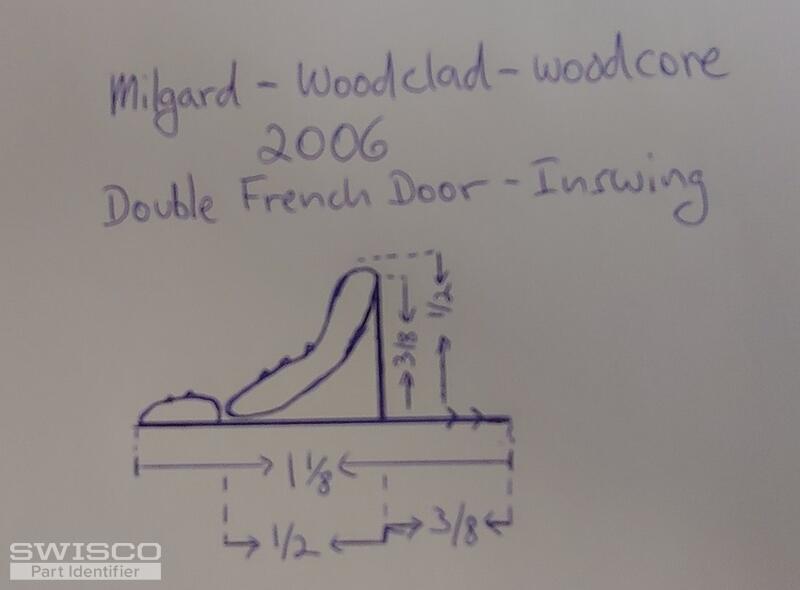 Milgard - Woodclad - woodcore
2006
Double French Door - Inswing
1/2
3/8
1 1/8
1/2
3/8
SWISCO
Part Identifier